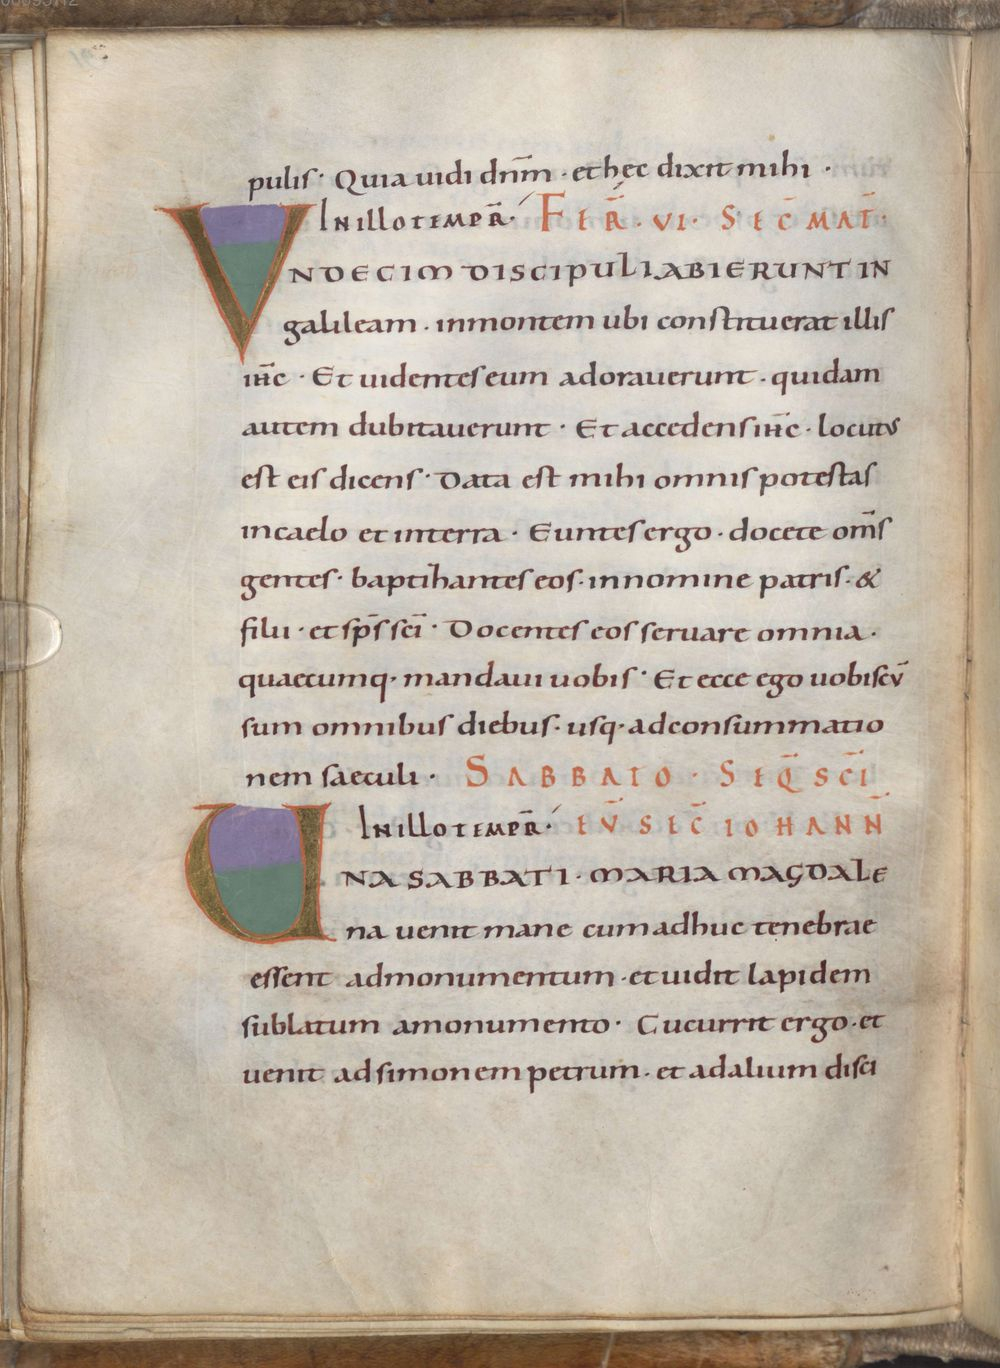 pulis · Quia uidi dñm · et hec dixit mihi ·
In illo tempr̄ · FER̄ · VI · SEC̄ MAT̄ ·
VNDECIM DISCIPULI ABIERUNT IN
galileam · in montem ubi constituerat illis
ih̄c · Et uidentes eum adorauerunt · quidam
autem dubitauerunt · Et accedens ih̄c · locutus
est eis dicens · Data est mihi omnis potestas
in caelo et in terra · Euntes ergo · docete om̄s
gentes · baptizantes eos · in nomine patris · &
filii · et sp̄s sc̄i · Docentes eos seruare omnia ·
quaecumq· mandaui uobis · Et ecce ego uobiscū
sum omnibus diebus · usq· ad consummatio
nem saeculi · SABBATO · SEQ̄ SC̄I
In illo tempr̄ · EṼ SEC̄ IOHANN̄
UNA SABBATI · MARIA MAGDALE
na uenit mane cum adhuc tenebrae
essent ad monumentum · et uidit lapidem
sublatum a monumento · Cucurrit ergo · et
uenit ad simonem petrum · et ad alium disci